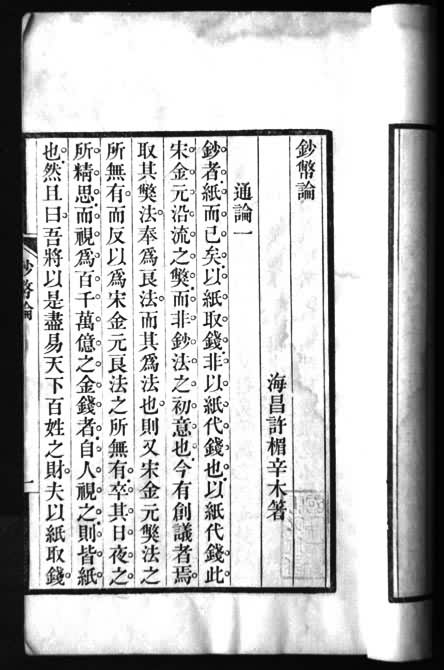 鈔幣論
海昌許楣辛木箸
通論一
鈔者紙而已矣。以紙取錢。非以紙代錢也。以紙代錢。此
宋金元沿流之獘。而非鈔法之初意也。今有創議者焉。
取其獘法。奉爲良法。而其爲法也。則又宋金元獘法之
所無有。而反以爲宋金元良法之所無有。卒其日夜之
所精思。而視爲百千萬億之金錢者。自人視之。則皆紙
也。然且曰。吾將以是盡易天下百姓之財。夫以紙取錢。
鈔幣論
一